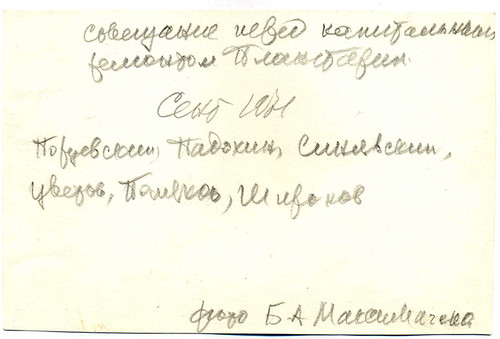 совещание перед капитальным
ремонтом Планетария
Сент 1971
Порцевский, Падохин, Синявский,
Цветов, Широков
фото Б А Максимачева